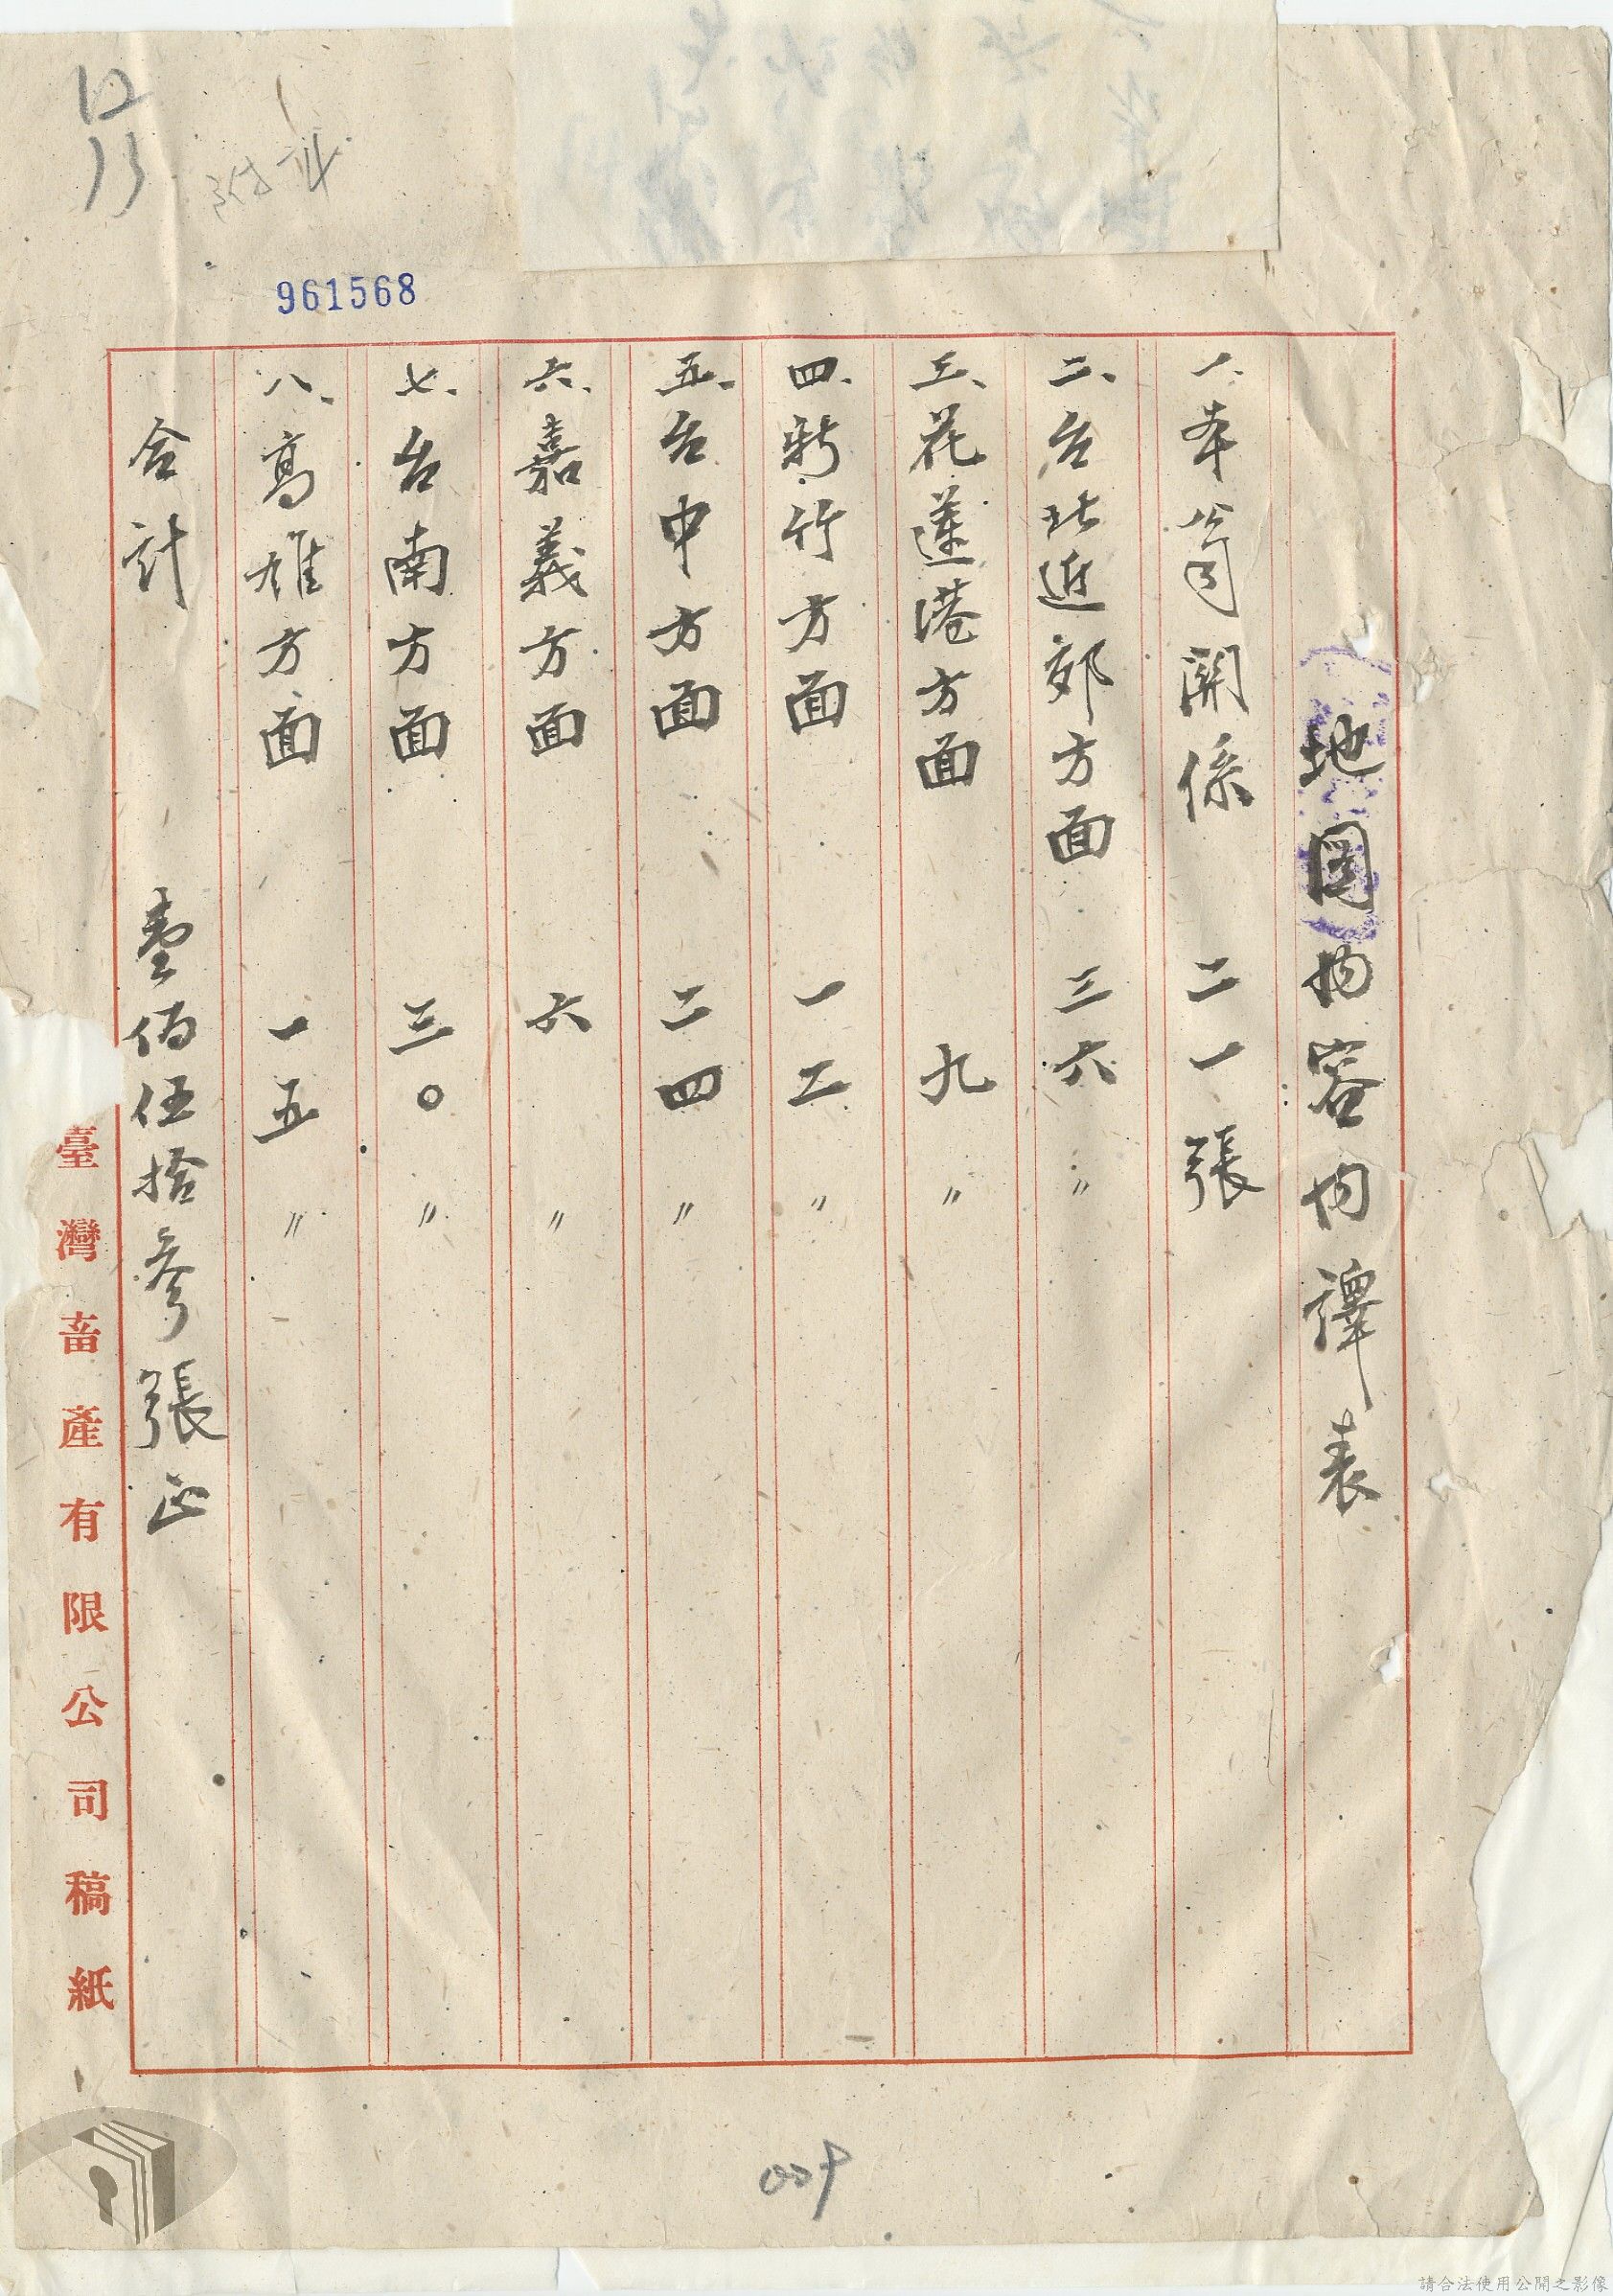 961568
地圖内容内譯表
一、本公司関係 二一張
二、台北近郊方面 三六〃
三、花蓮港方面 九〃
四、新竹方面 一二〃
五、台中方面 二四〃
六、嘉義方面 六〃
七、台南方面 三〇〃
八、高雄方面 一五〃
合計 壹佰伍拾參張正
臺灣畜產有限公司稿紙
009
請合法使用公開之影像